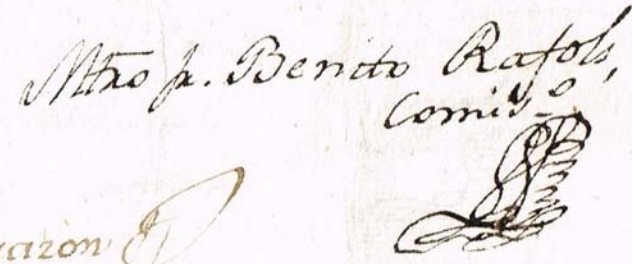 Mtro fr. Benito Rafols,
Comisº